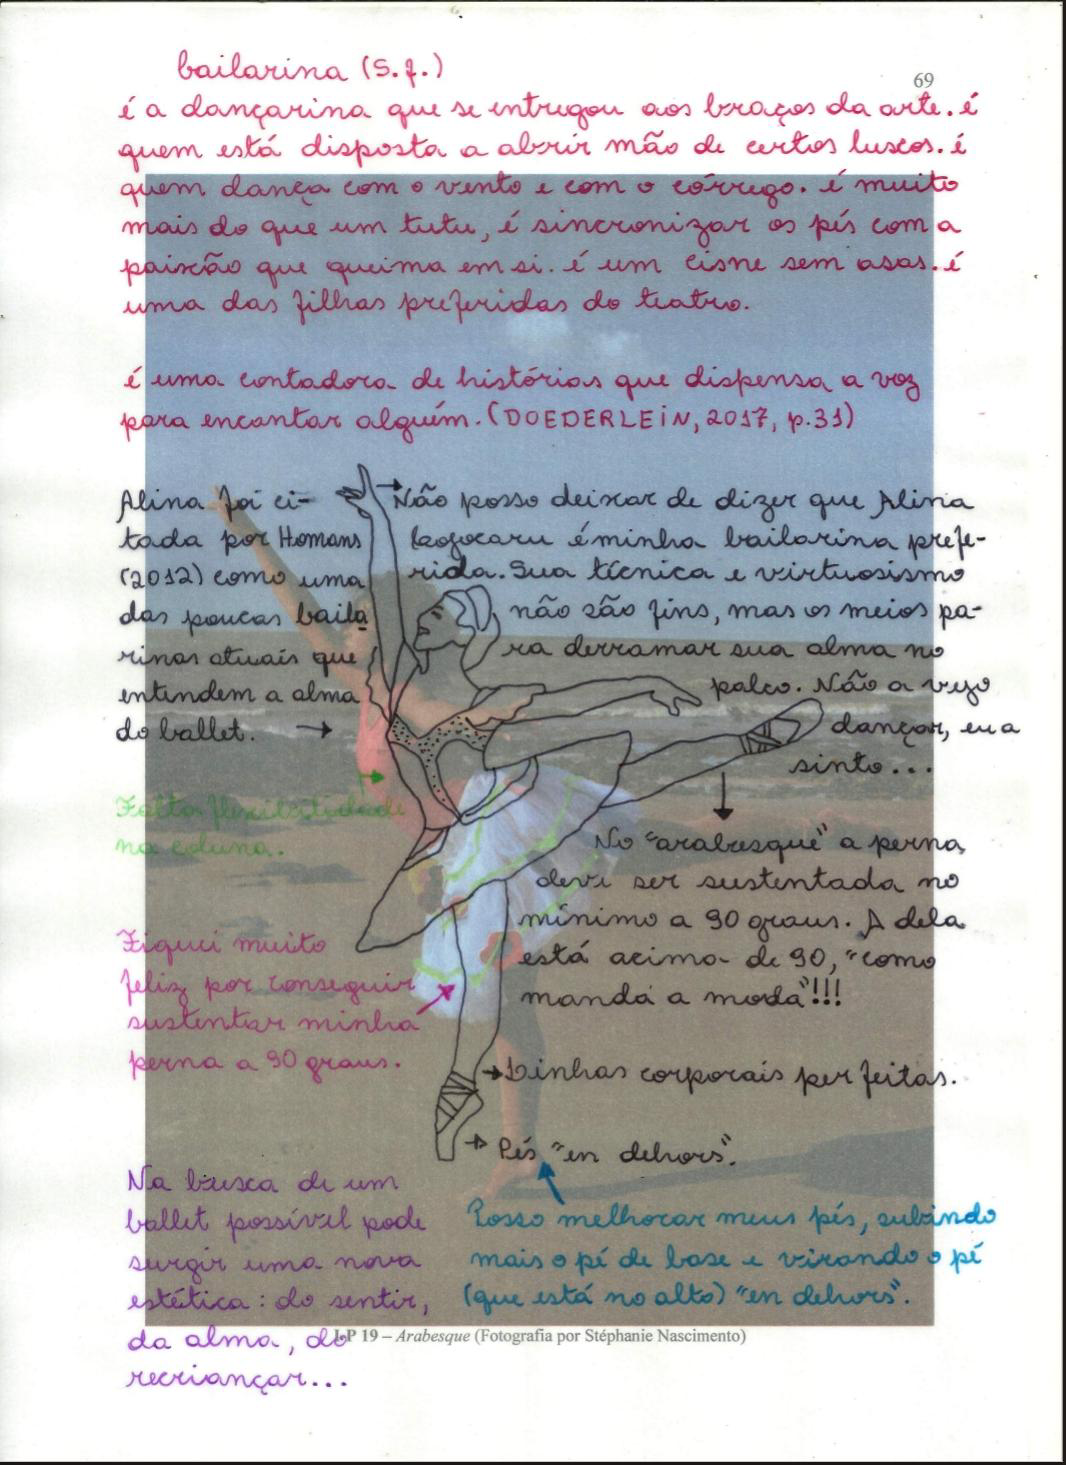 bailarina (s.f.)
69
é a dançarina que se entregou aos braços da arte. é
quem está disposta a abrir mão de certos luxos. é
quem dança com o vento e com o córrego. é muito
mais do que um tutu, é sincronizar os pés com a
paixão que queima em si. é um cisne sem asas. é
uma das filhas preferidas do teatro.
é uma contadora de histórias que dispensa a voz
para encantar alguém. (DOEDERLEIN, 2017, p.31)
Alina foi ci-
tada por Homans
(2012) como uma
das poucas baila
rinas atuais que
entendem a alma
do ballet.
Não posso deixar de dizer que Alina
Cojocaru é minha bailarina prefe-
rida. Sua técnica e virtuosismo
não são fins, mas os meios pa-
ra derramar sua alma no
palco. Não a vejo
dançar, eu a
sinto...
Falta flexibilidade
na coluna.
No "arabesque" a perna
deve ser sustentada no
mínimo a 90 graus. A dela
está acima de 90, "como
manda a moda"!!!
Fiquei muito
feliz por conseguir
sustentar minha
perna a 90 graus.
Linhas corporais perfeitas.
Pés "en dehors".
Na busca de um
ballet possível pode
surgir uma nova
estética: do sentir,
da alma, do
recriançar...
Posso melhorar meus pés, subindo
mais o pé de base e virando o pé
(que está no alto) "en dehors".
LP 19 – Arabesque (Fotografia por Stéphanie Nascimento)